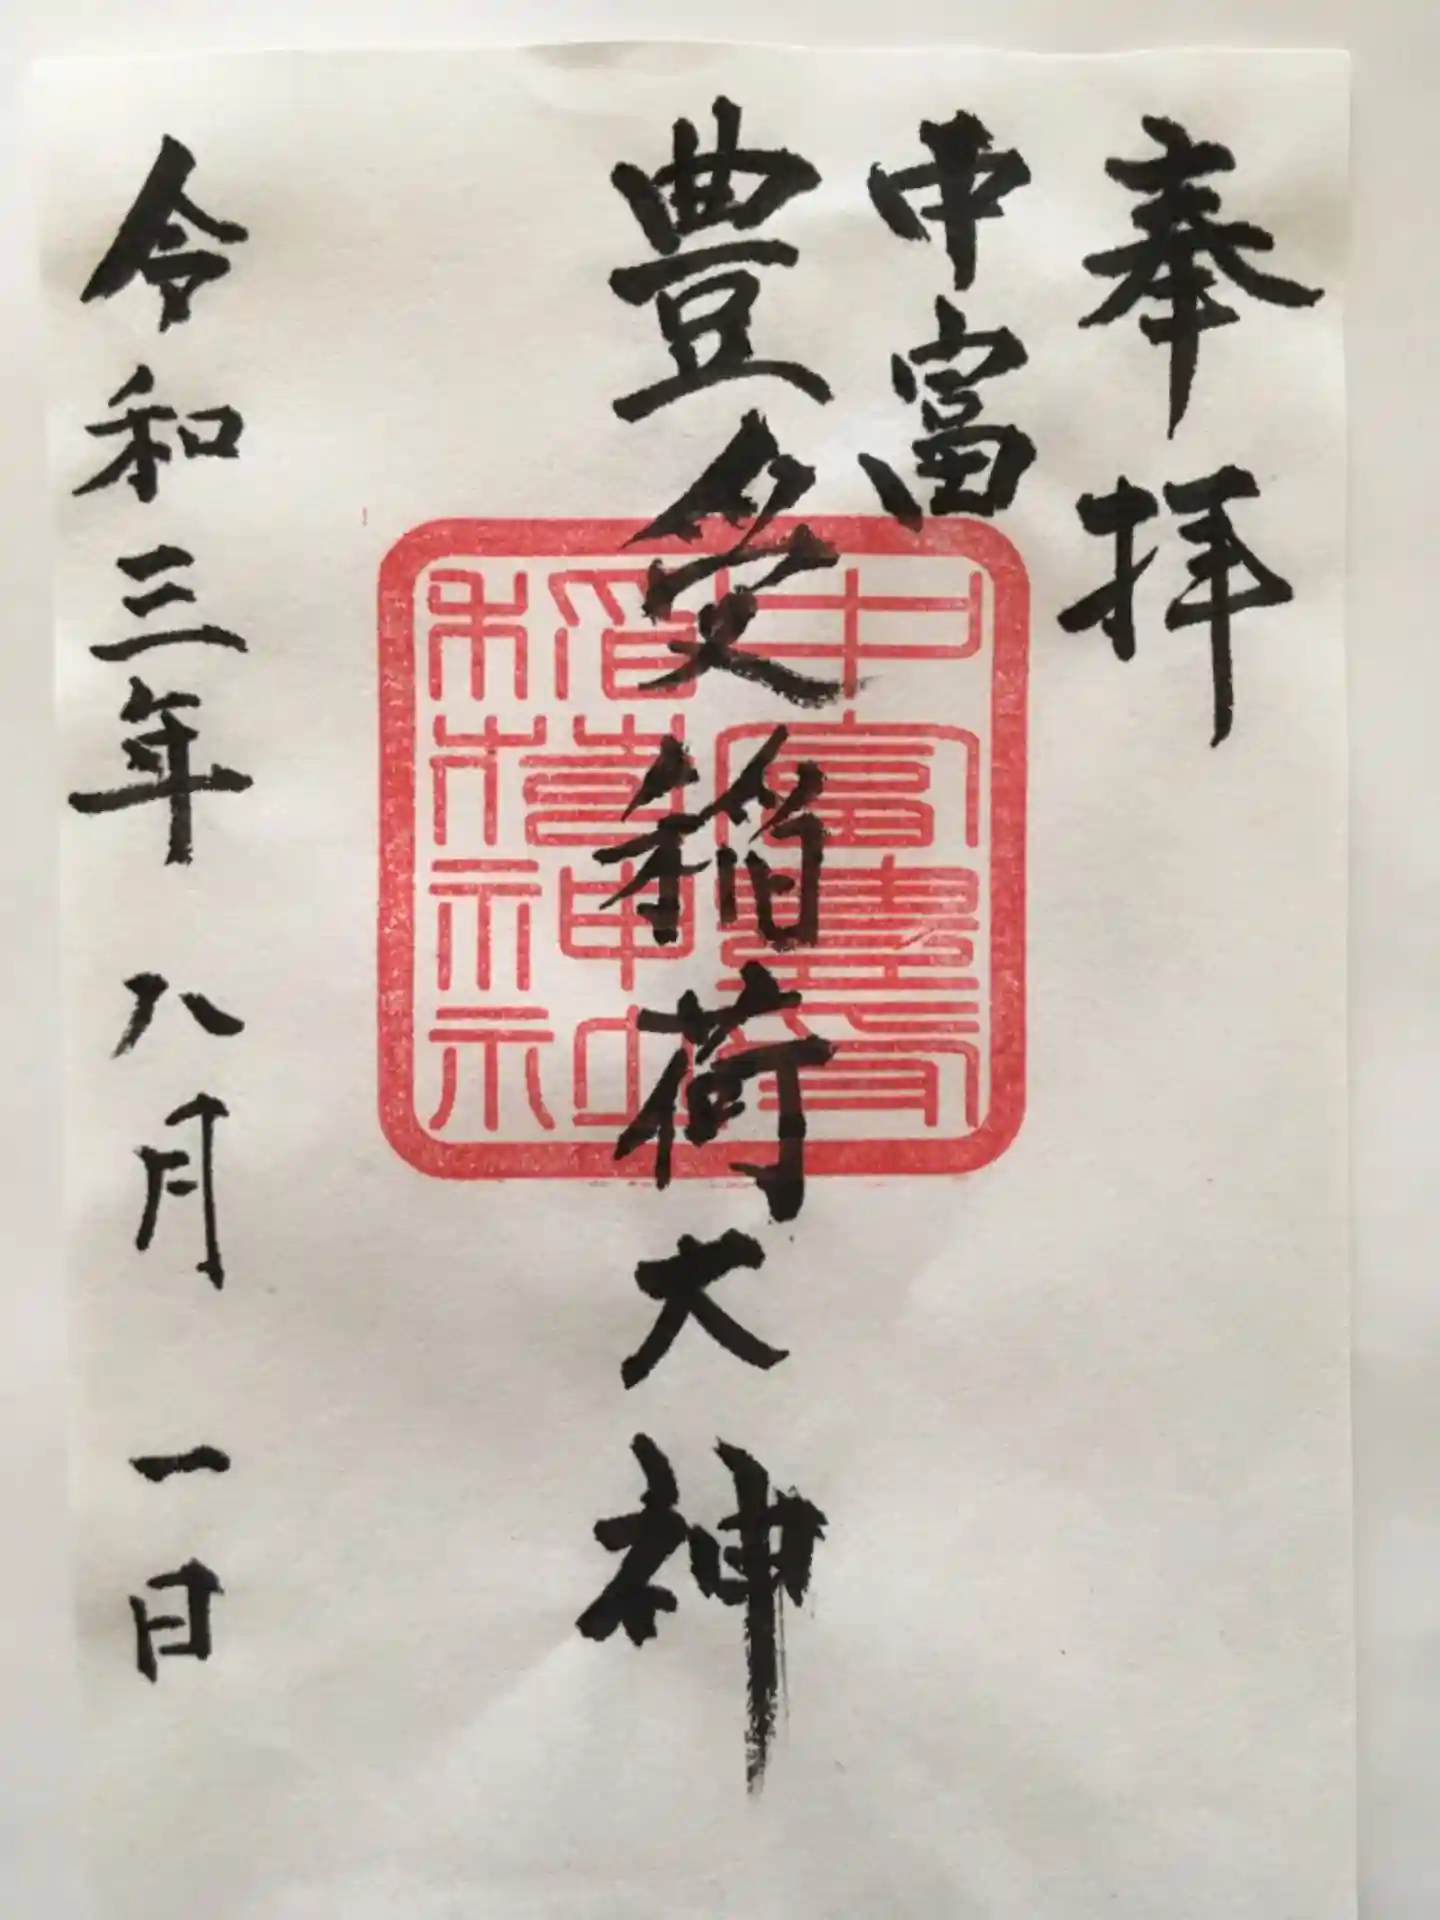 奉拝
中富
豊受稲荷大神
中富豊受
稲荷神社
令和三年八月一日